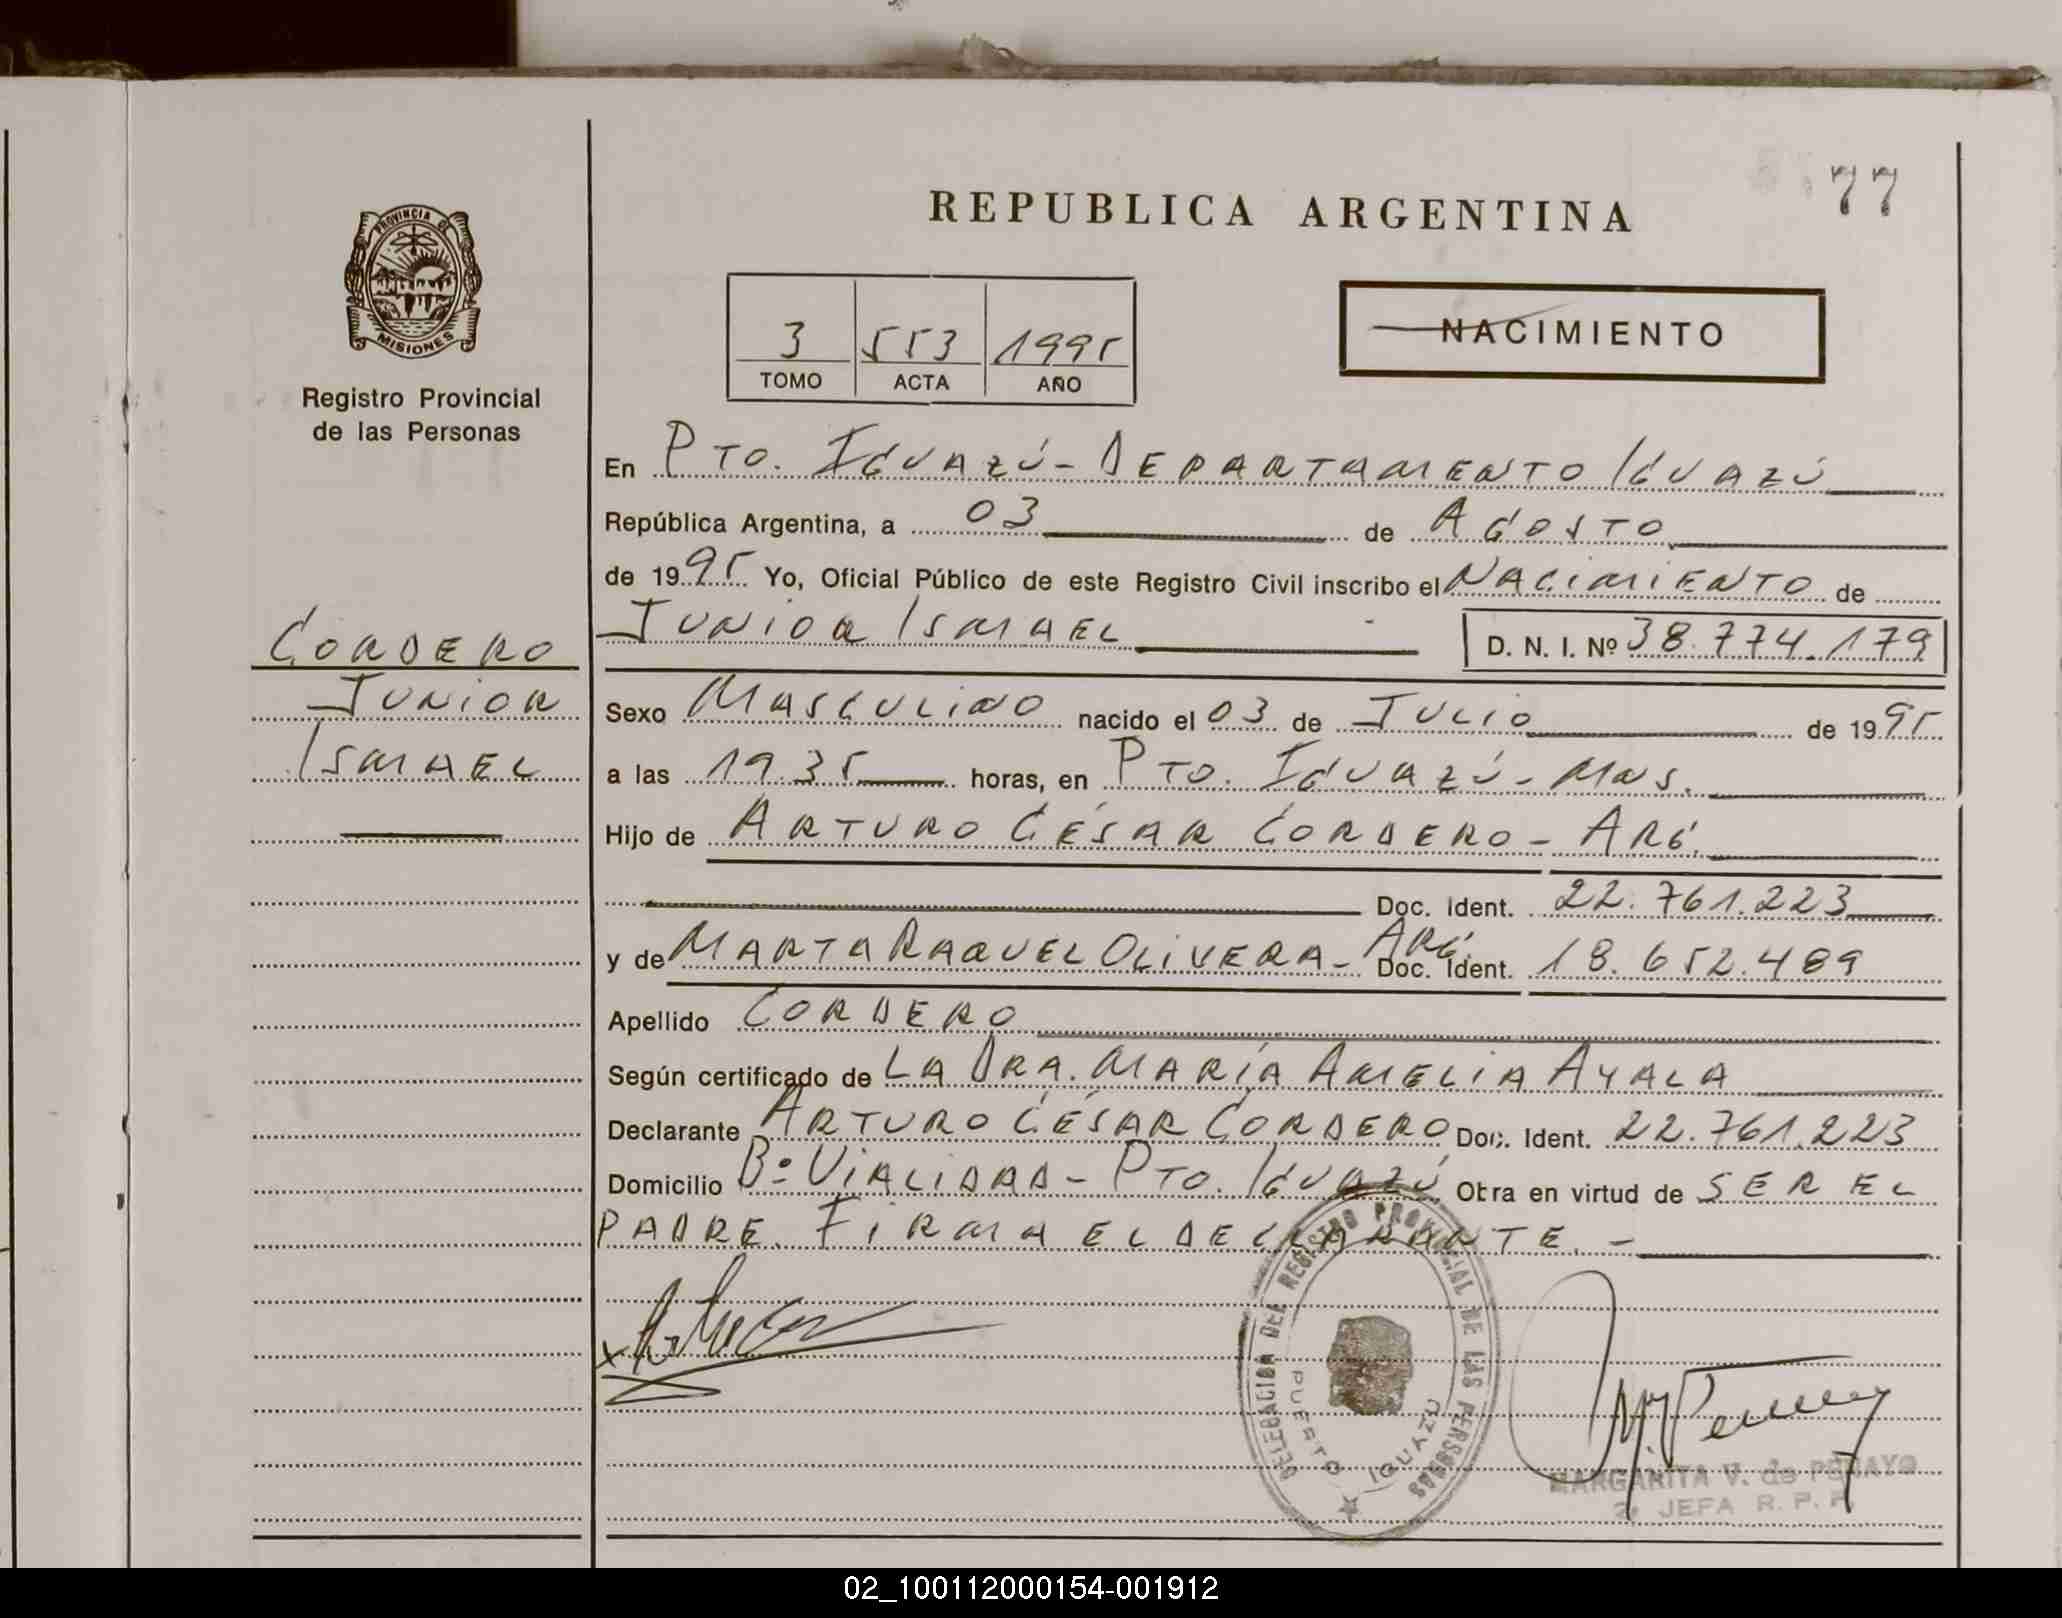 77
REPUBLICA ARGENTINA
PROVINCIA DE
MISIONES
Registro Provincial
de las Personas
3 553 1995
TOMO ACTA AÑO
NACIMIENTO
En PTO. IGUAZÚ - DEPARTAMENTO IGUAZÚ
República Argentina, a 03 de AGOSTO
de 1995 Yo, Oficial Público de este Registro Civil inscribo el NACIMIENTO de
JUNIOR ISMAEL D. N. I. Nº 38.774.179
CORDERO
JUNIOR
ISMAEL
Sexo MASCULINO nacido el 03 de JULIO de 1995
a las 19.35 horas, en PTO. IGUAZÚ - MNS.
Hijo de ARTURO CÉSAR CORDERO - ARG.
Doc. Ident. 22.761.223
y de MARTA RAQUEL OLIVERA - ARG. Doc. Ident. 18.652.489
Apellido CORDERO
Según certificado de LA DRA. MARÍA AMELIA AYALA
Declarante ARTURO CÉSAR CORDERO Doc. Ident. 22.761.223
Domicilio Bº VIALIDAD - PTO. IGUAZÚ Otra en virtud de SER EL
PADRE. FIRMA EL DECLARANTE. -
DELEGACION DEL REGISTRO PROVINCIAL DE LAS PERSONAS
PUERTO IGUAZU
MARGARITA V. de PENAYO
2ª JEFA R. P. P.
02_100112000154-001912